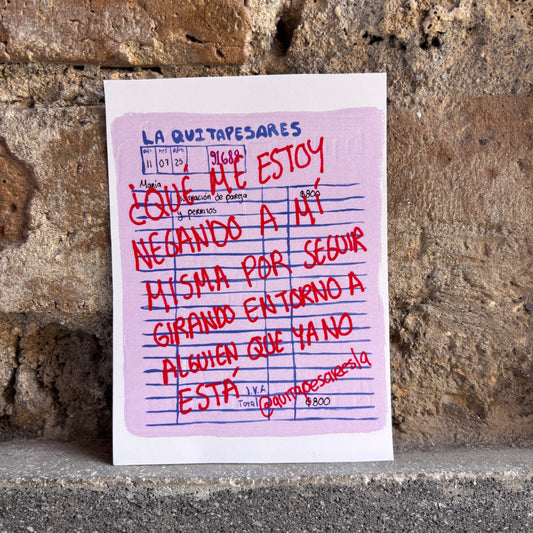 LA QUITAPESARES
DÍA MES AÑO
11 07 25
91688
María
¿QUÉ ME ESTOY
ración de pareja $800
y perritos
NEGANDO A MÍ
MISMA POR SEGUIR
GIRANDO ENTORNO A
ALGUIEN QUE YA NO
ESTÁ
I.V.A
@quitapesaresla
Total $800